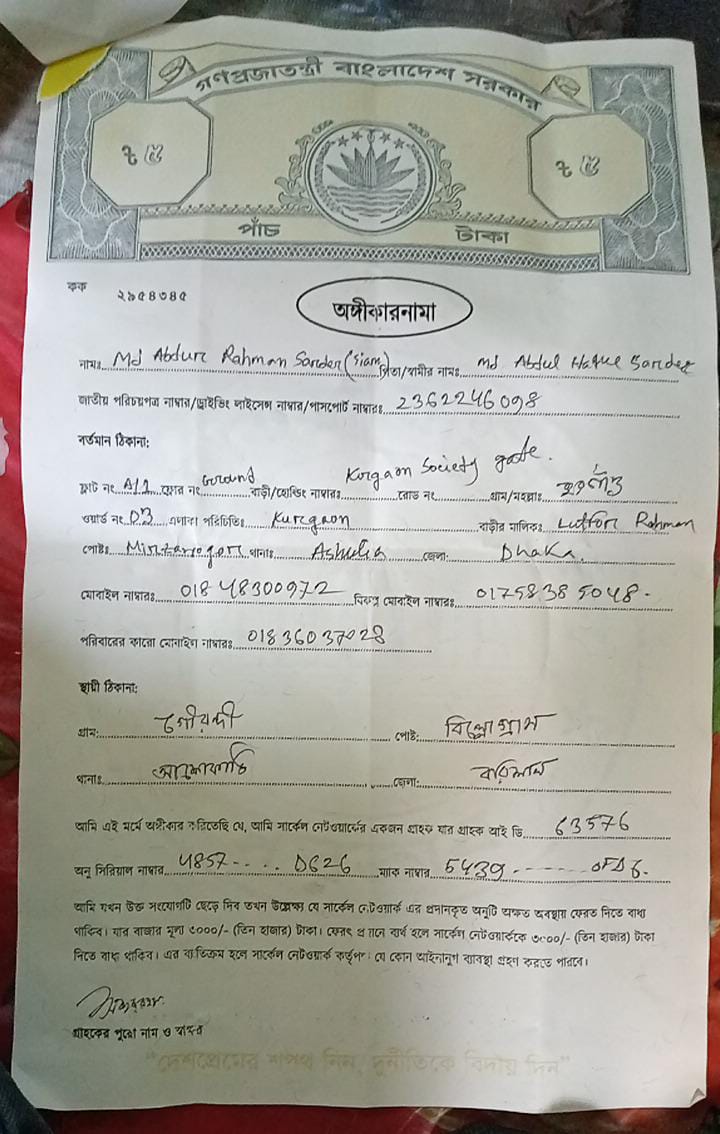 গণপ্রজাতন্ত্রী বাংলাদেশ সরকার
৳ ৫ ৳ ৫
পাঁচ টাকা
কক ২৯৫৪৩৪৫
অঙ্গীকারনামা
নামঃ Md Abdur Rahman Sarder (Siam) পিতা/স্বামীর নামঃ md Abdul Haque Sarder
জাতীয় পরিচয়পত্র নাম্বার/ড্রাইভিং লাইসেন্স নাম্বার/পাসপোর্ট নাম্বারঃ 2362246098
বর্তমান ঠিকানা:
ফ্লাট নং A/1 ফ্লোর নং Ground বাড়ী/হোল্ডিং নাম্বারঃ Kurgaon Society gate. রোড নং গ্রাম/মহল্লাঃ কুরগাঁও
ওয়ার্ড নং 03 এলাকা পরিচিতিঃ Kurgaon বাড়ীর মালিকঃ Lutfor Rahman
পোষ্টঃ থানাঃ Ashulia জেলা: Dhaka
মোবাইল নাম্বারঃ 01848300972 বিকল্প মোবাইল নাম্বারঃ 01758385048.
পরিবারের কারো মোবাইল নাম্বারঃ 01836037028
স্থায়ী ঠিকানা:
গ্রাম: গৌরনদী পোষ্ট: বিল্লোগ্রাম
থানাঃ জেলা: বরিশাল
আমি এই মর্মে অঙ্গীকার করিতেছি যে, আমি সার্কেল নেটওয়ার্কের একজন গ্রাহক যার গ্রাহক আই ডি 63576
অনু সিরিয়াল নাম্বার 4857.... D626 ম্যাক নাম্বার 5439 ------- 0FD6.
আমি যখন উক্ত সংযোগটি ছেড়ে দিব তখন উল্লেখ্য যে সার্কেল নেটওয়ার্ক এর প্রদানকৃত অনুটি অক্ষত অবস্থায় ফেরত দিতে বাধ্য
থাকিব। যার বাজার মূল্য ৩০০০/- (তিন হাজার) টাকা। ফেরৎ প্রদানে ব্যর্থ হলে সার্কেল নেটওয়ার্ককে ৩০০০/- (তিন হাজার) টাকা
দিতে বাধ্য থাকিব। এর ব্যতিক্রম হলে সার্কেল নেটওয়ার্ক কর্তৃপক্ষ যে কোন আইনানুগ ব্যবস্থা গ্রহণ করতে পারবে।
গ্রাহকের পুরো নাম ও স্বাক্ষর
“দেশপ্রেমের শপথ নিন, দুর্নীতিকে বিদায় দিন”